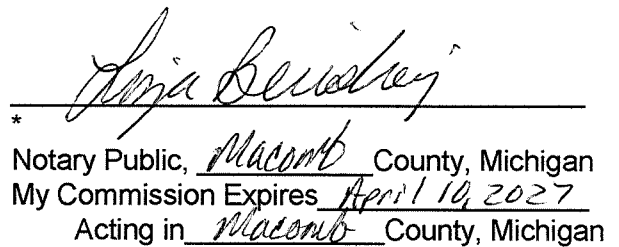 *
Notary Public, Macomb County, Michigan
My Commission Expires April 10, 2027
Acting in Macomb County, Michigan